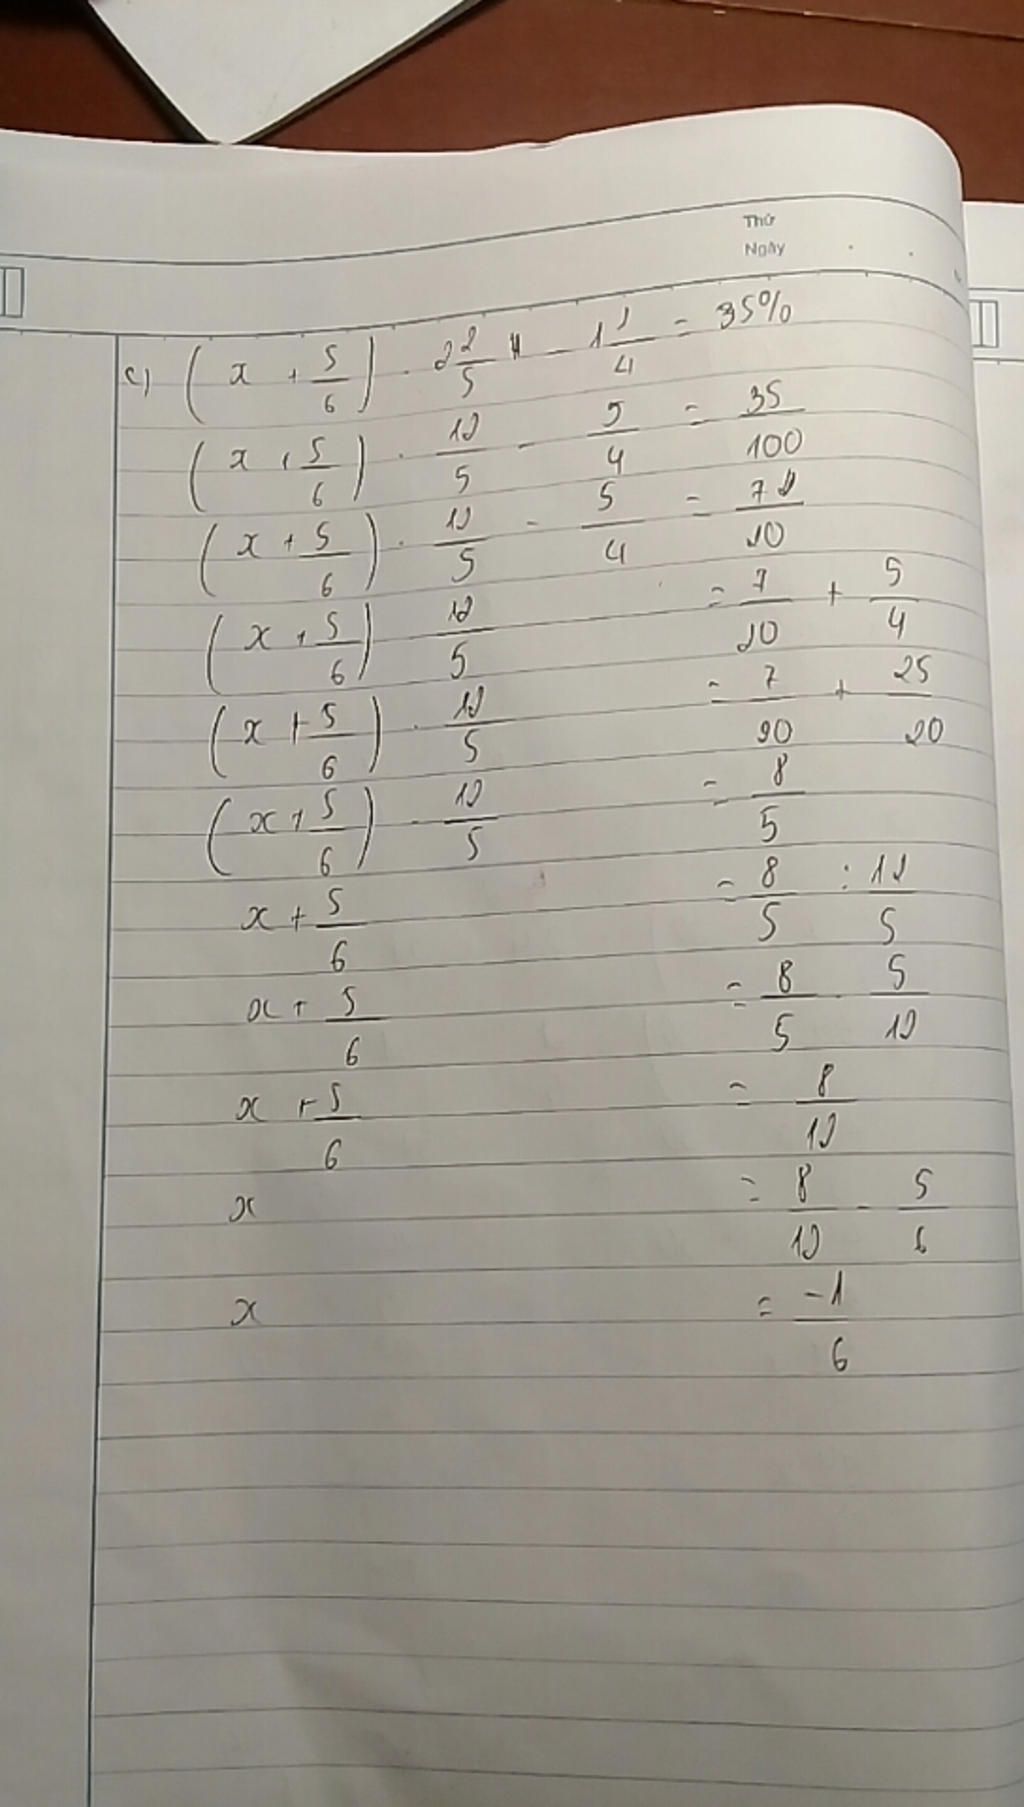 Thứ
Ngày
c) (x + 5/6) . 2 2/5 - 1 1/4 = 35%
(x + 5/6) . 12/5 - 5/4 = 35/100
(x + 5/6) . 12/5 - 5/4 = 7/20
(x + 5/6) 12/5 = 7/20 + 5/4
(x + 5/6) . 12/5 = 7/20 + 25/20
(x + 5/6) . 12/5 = 8/5
x + 5/6 = 8/5 : 12/5
x + 5/6 = 8/5 . 5/12
x + 5/6 = 8/12
x = 8/12 - 5/6
x = -1/6